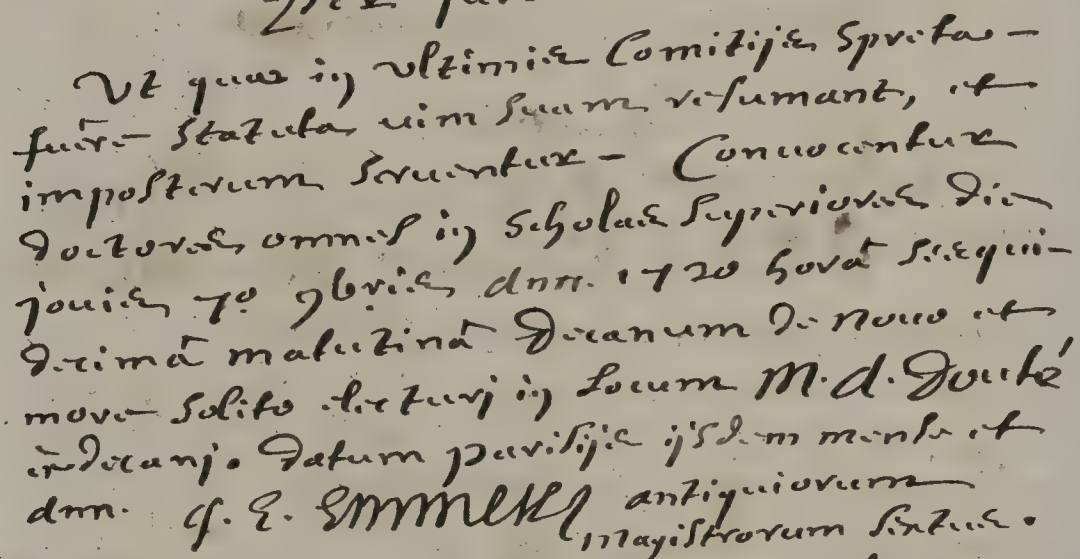 Ut quae in ultimis Comitijs Spreta
fuêre Statuta, uim suam resumant, et
imposterum Seruentur — Conuocentur
doctores omnes in scholas superiores die
jouis 7º 9bris ann. 1720 horâ sesqui-
decimâ matutinâ Decanum de nouo et
more solito electurj in Locum M. d. Douté
decanj. Datum parisijs ijsdem mense et
ann. E. Emmerez antiquiorum
magistrorum sextus.